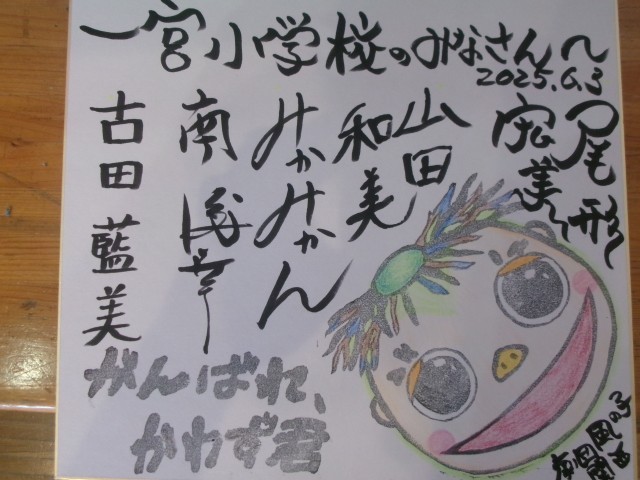 一宮小学校のみなさんへ
2025.6.3
尾形
宏美
山田
和美
みかみかん
南
古田藍美
がんばれ、
かわず君
風の子